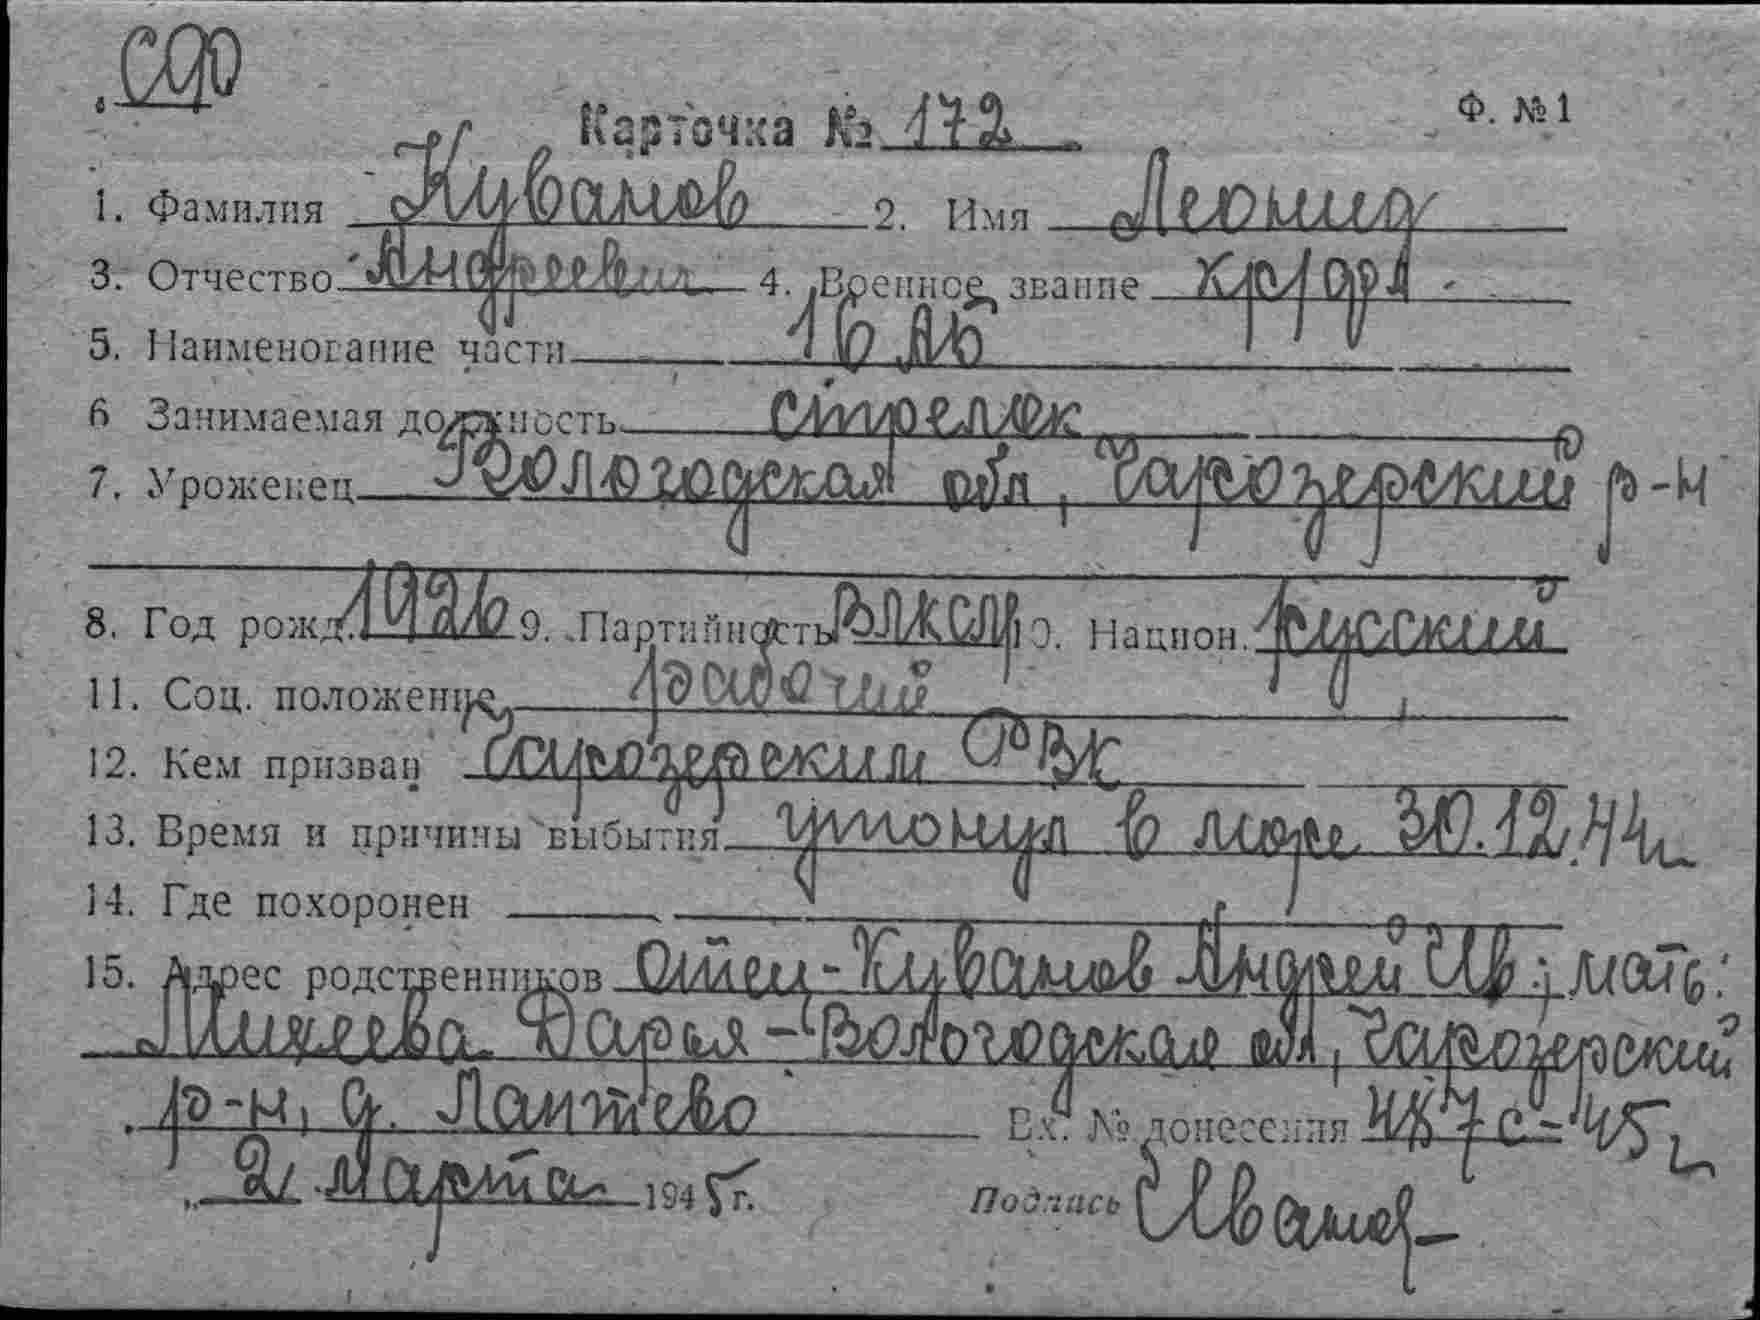 СФ
Ф. №1
Карточка № 172
1. Фамилия Куванов 2. Имя Леонид
3. Отчество Андреевич 4. Военное звание кр/фл
5. Наименование части
6 Занимаемая должность стрелок
7. Уроженец Вологодская обл, Чарозерский р-н
8. Год рожд. 1926 9. Партийность ВЛКСМ 10. Национ. русский
11. Соц. положение рабочий
12. Кем призван Чарозерским РВК
13. Время и причины выбытия утонул в море 30.12.44г
14. Где похоронен
15. Адрес родственников отец - Куванов Андрей Ив; мать:
Михеева Дарья - Вологодская обл, Чарозерский
р-н, д. Лаптево Вх. № донесения 487с-45г
2 марта 1945 г. Подпись